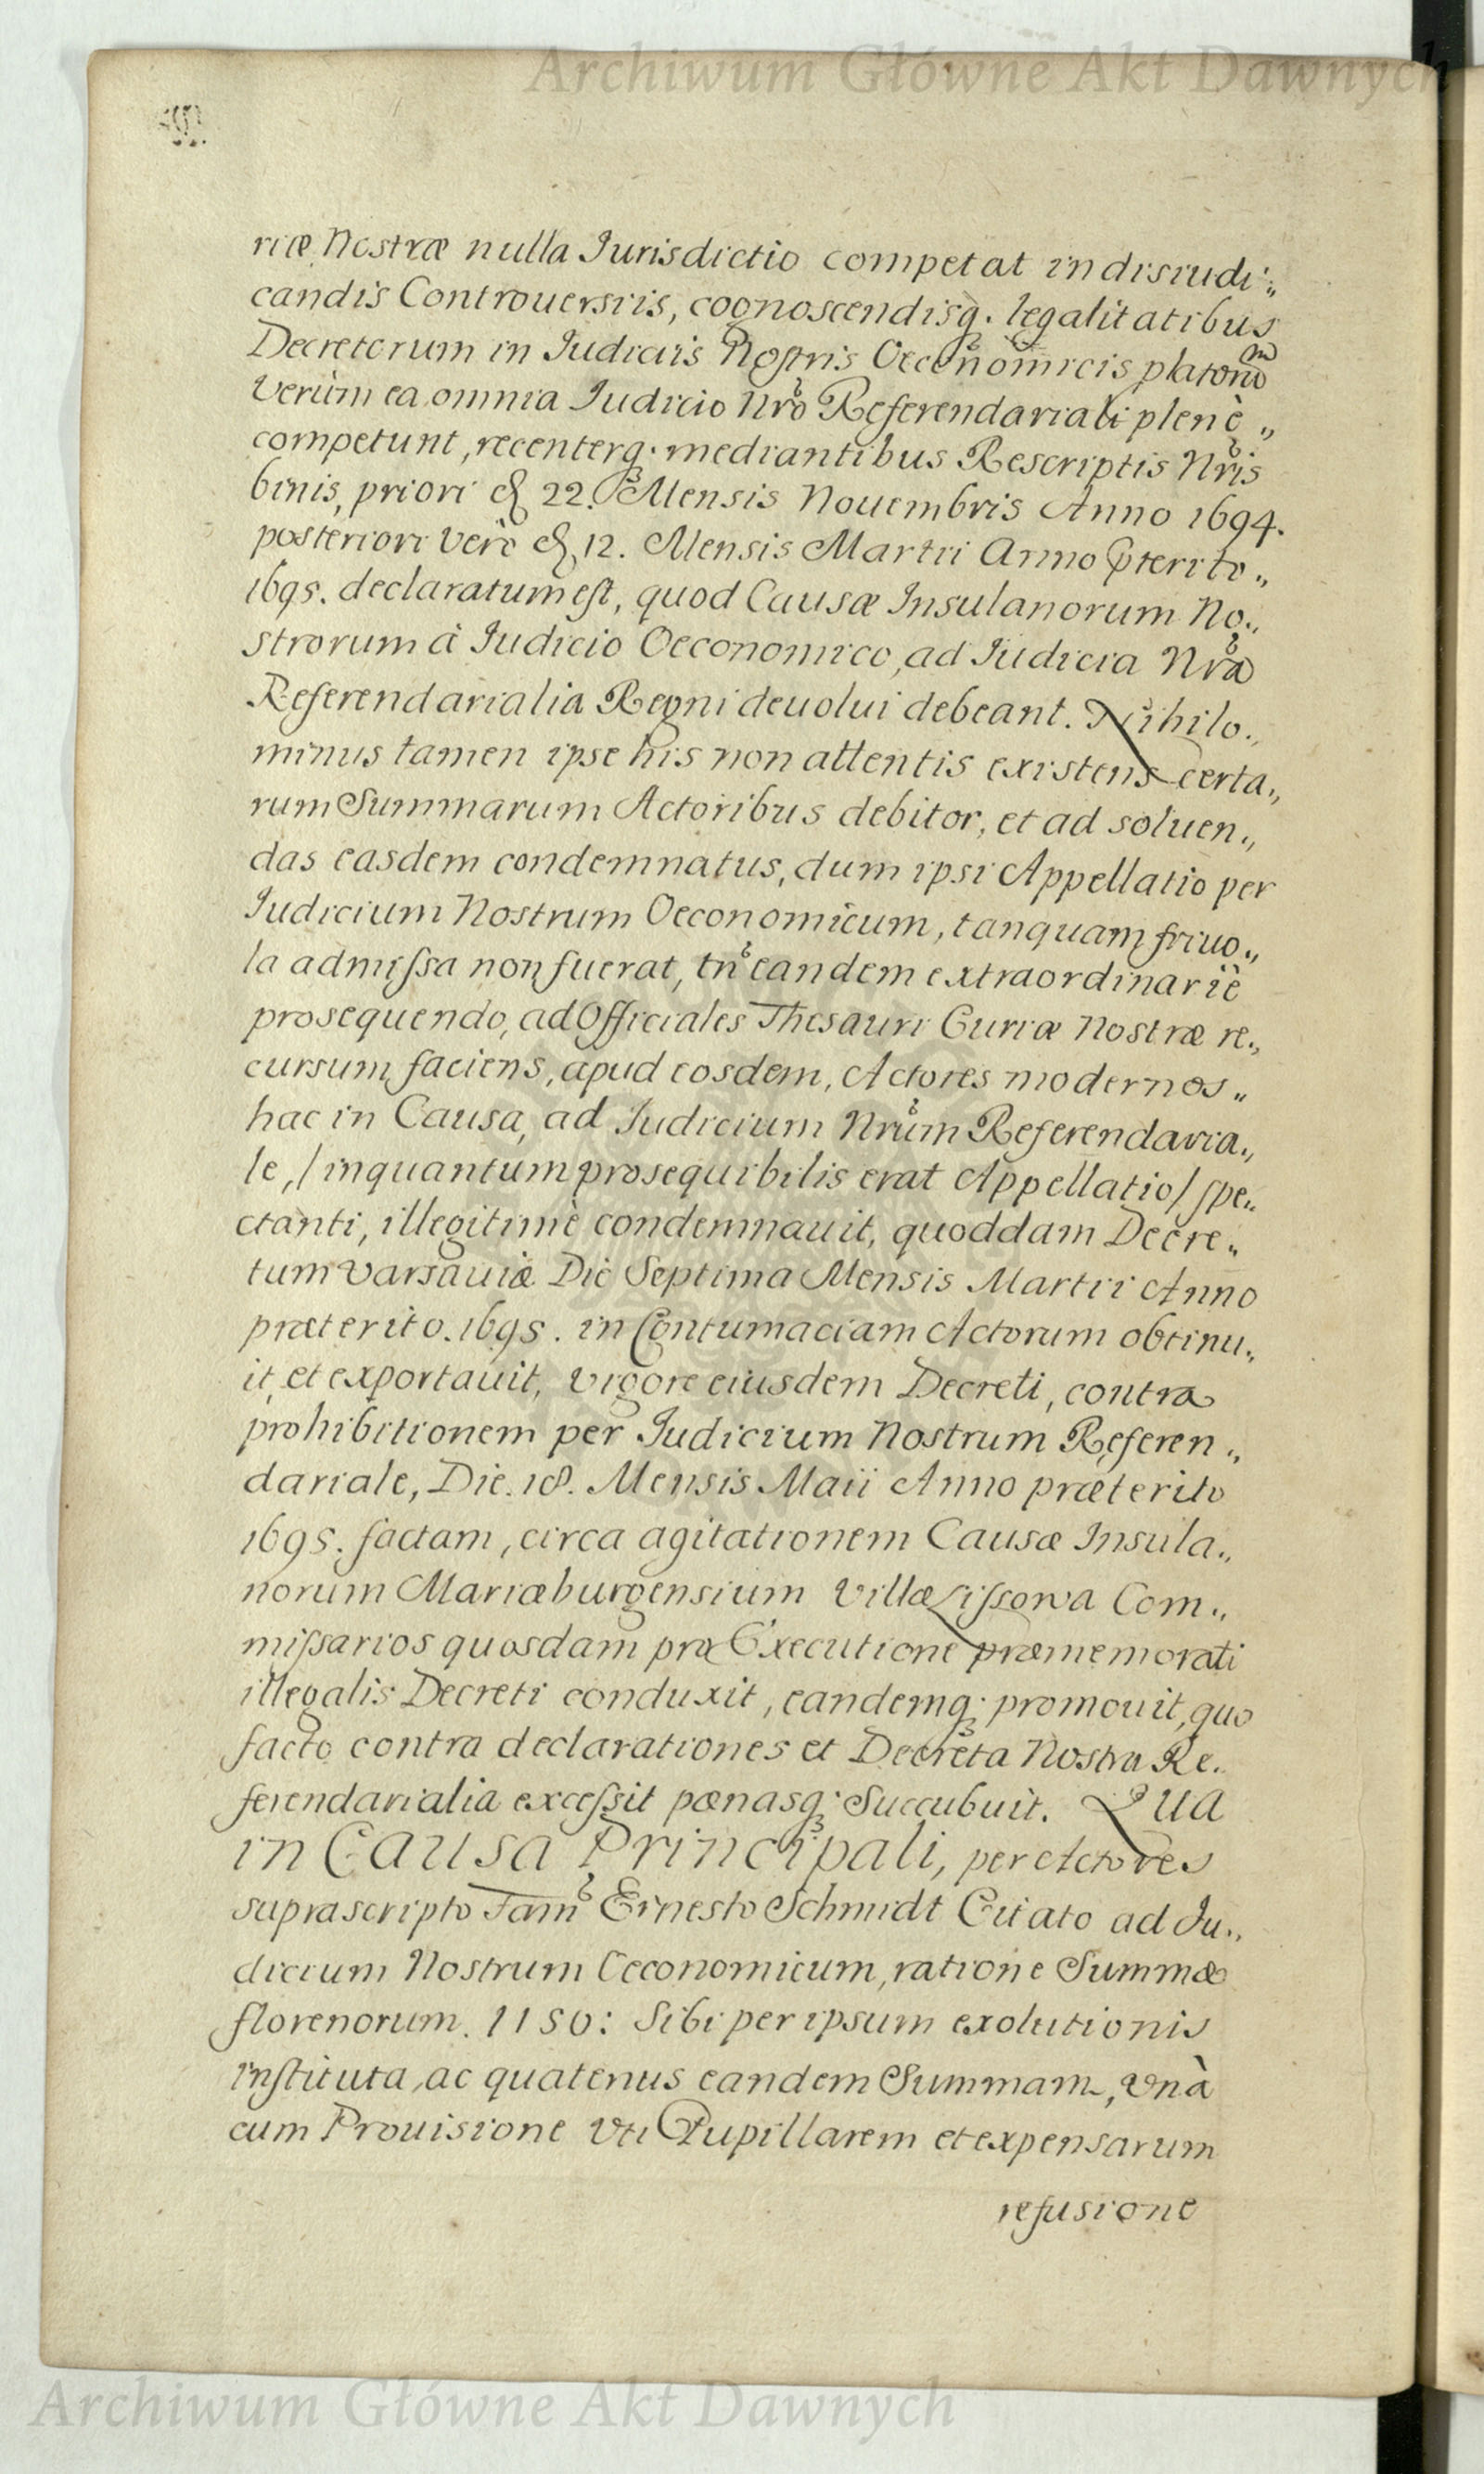 Archiwum Główne Akt Dawnych
riæ Nostræ nulla Jurisdictio competat in disiudi„
candis Controuersiis, cognoscendisq; legalitatibus
Decretorum in Judiciis Nostris Oeconomicis
Verùm ea omnia Judicio Nrõ Referendariali plenè„
competunt, recenterq; mediantibus Rescriptis Nris
binis, priori 22. Mensis Nouembris Anno 1694.
posteriori verò 12. Mensis Martii Anno pterito„
1695. declaratum est, quod Causæ Insulanorum No„
strorum à Judicio Oeconomico, ad Judicia Nra
Referendarialia Regni deuolui debeant. Nihilo„
minus tamen ipse his non attentis existens certa„
rum Summarum Actoribus debitor, et ad soluen„
das easdem condemnatus, dum ipsi Appellatio per
Judicium Nostrum Oeconomicum, tanquam friuo„
la admissa non fuerat, tn eandem extraordinariè
prosequendo, ad Officiales Thesauri Curiæ Nostræ re„
cursum faciens, apud eosdem, Actores modernos„
hac in Causa, ad Judicium Nrum Referendaria„
le, / inquantum prosequibilis erat Appellatio / spe„
ctanti, illegitimè condemnauit, quoddam Decre„
tum Varsauiæ Die Septima Mensis Martii Anno
præterito. 1695. in Contumaciam Actorum obtinu„
it, et exportauit, vigore eiusdem Decreti, contra
prohibitionem per Judicium Nostrum Referen„
dariale, Die. 18. Mensis Maii Anno præterito
1695. factam, circa agitationem Causæ Insula„
norum Mariæburgensium Villæ Lissowa Com„
missarios quosdam pro Executione præmemorati
illegalis Decreti conduxit, eandemq; promouit, quo
facto contra declarationes et Decreta Nostra Re„
ferendarialia excessit pœnasq; Succubuit. Qua
in Causa Principali, per Actores
suprascripto Fam Ernesto Schmidt Citato ad Ju„
dicium Nostrum Oeconomicum, ratione Summæ
florenorum. 1150: Sibi per ipsum exolutionis
instituta, ac quatenus eandem Summam, vnà
cum Prouisione vti Pupillarem et expensarum
refusione
Archiwum Główne Akt Dawnych